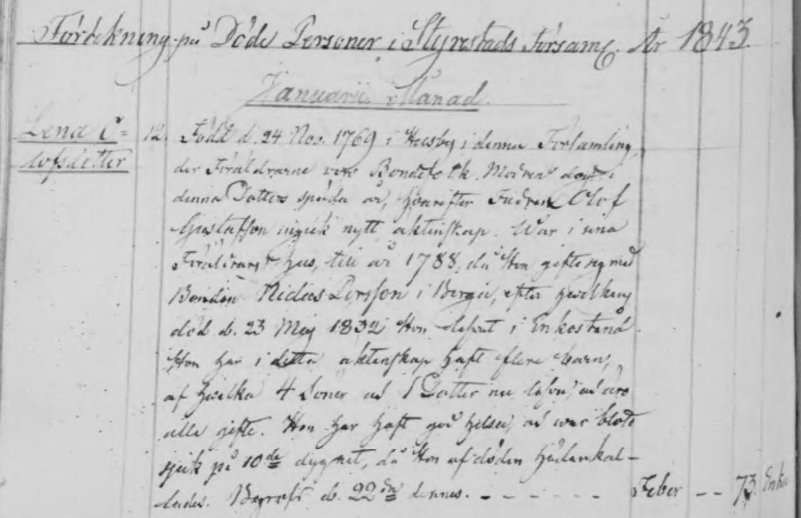 Förtekning på Döde Personer i Styrestads Församl. År 1843.
Januarii Månad.
Lena O= 12. Född d. 24 Nov. 1769 i Husby i denna Församling,
lofsdotter der Föräldrarne voro Bondefolk. Modren dog i
denna Dotters späda år, hvarefter Fadren Olof
Gustafson ingick nytt äktenskap. War i sina
Föräldrars hus, till år 1788, då Hon gifte sig med
Bonden Niclas Persson i Bergie, efter hvilkens
död d. 23 Maj 1832 Hon lefvat i Enkostånd.
Hon har i detta äktenskap haft flere barn,
af hvilka 4 Söner och 1 Dotter nu lefva, och äro
alla gifte. Hon har haft god helsa, och war blott
sjuk på 10de dygnet, då Hon af döden hädankal-
lades. Begrofs d. 22dn dennes. - - - - - - Feber - - 73. Enka